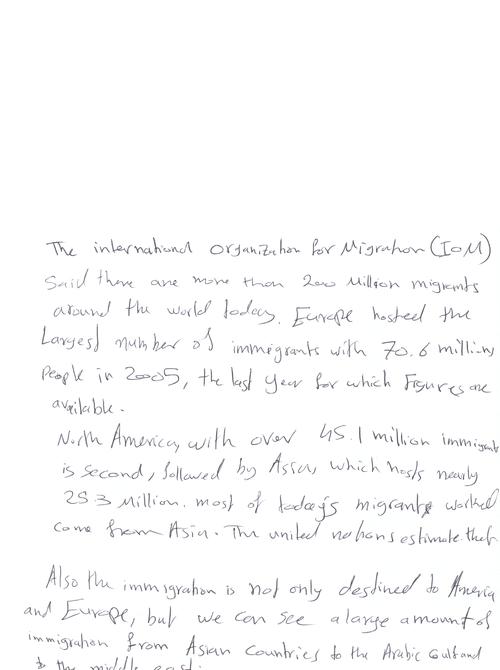 The international Organization for Migration (IOM)
Said there are more than 200 Million migrants
around the world today. Europe hosted the
Largest number of immigrants with 70.6 million
People in 2005, the last year for which Figures are
available.
North America, with over 45.1 million immigrants
is second, followed by Asia, which hosts nearly
25.3 Million. most of today's migrants worked
come from Asia. The united nations estimate that
Also the immigration is not only destined to America
and Europe, but we can see a large amount of
immigration from Asian Countries to the Arabic Gulf and
to the middle east.